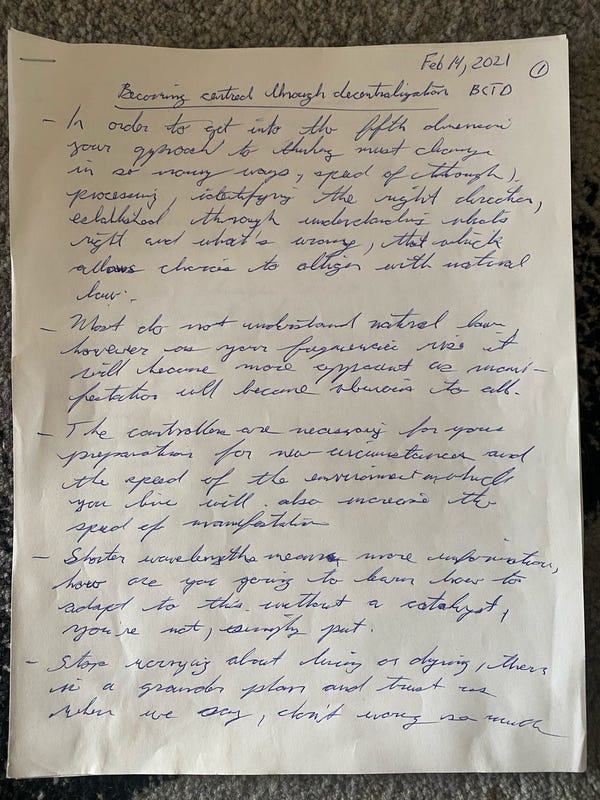 Feb 14, 2021 1
Becoming centred through decentralization BCTD
- In order to get into the fifth dimension
your approach to thinking must change
in so many ways, speed of (through),
processing, identifying the right direction,
established through understanding what's
right and what's wrong, that which
allows choices to allign with natural
law.
- Most do not understand natural law
however as your frequencies rise it
will become more apparent as mani-
festation will become obvious to all.
- The controllers are necessary for your
preparation for new circumstances and
the speed of the environment in which
you live will also increase the
speed of manifestation
- Shorter wavelengths means more information,
how are you going to learn how to
adapt to this without a catalyst,
you're not, simply put.
- Stop worrying about living or dying, there
is a grander plan and trust us
when we say, don't worry so much